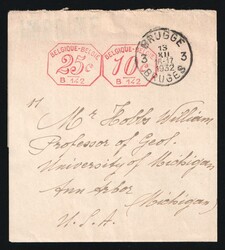 BELGIQUE-BELGIË
25c
B 142
BELGIQUE-BELGIË
10c
B 142
BRUGGE
3 3
13
XII
1932
BRUGES
Mr Hobbs William
Professor of Geol.
University of Michigan
Ann Arbor
(Michigan)
U.S.A.